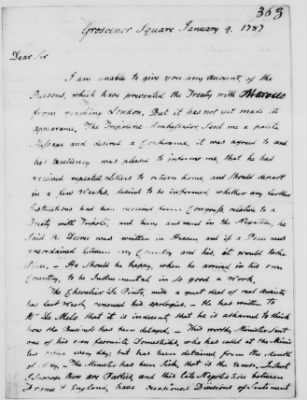 363
Grosvenor Square January 9. 1787
Dear Sir
I am unable to give you any Account, of the
Reasons, which have prevented the Treaty with Morocco
from reaching London. But it has not yet made its
appearance. The Tripoline Ambassador sent me a polite
Message and desired a Conference, it was agreed to and
his Excellency was pleased to inform me, that he had
received repeated Letters to return home, and should depart
in a few Weeks, desired to be informed whether any further
Instructions had been received from Congress, relative to a
Treaty with Tripoli, and being answered in the Negative, he
said the Decree was written in Heaven, and if a Peace was
preordained between my Country and his, it would take
Place. He should be happy, when he arrived in his own
Country, to be Instrumental in so good a Work.
The Chevalier De Pinto, with a great deal of real anxiety
has last Week renewed his apologies. He has written to
Mr De Melo that it is indecent; that he is ashamed to think
how the Business has been delayed. This worthy Minister sent
one of his own favourite Domesticks, who has called at the Minis
ters once every day; but has been detained from the Month
of May. The Minister has been sick, that is the
there are Parties, and this late Negotiation between
France & England, have occasioned Divisions of Sentiment